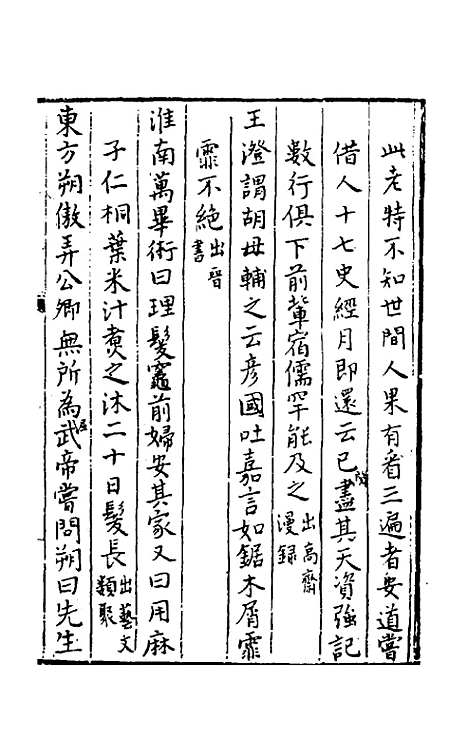 此老特不知世間人果有看三遍者安道嘗
借人十七史經月即還云已盡其天資強記
數行俱下前輩宿儒罕能及之出高齋漫錄
王澄謂胡母輔之云彦國吐嘉言如鋸木屑霏
霏不絶出晉書
淮南萬畢術曰理髮竈前婦安其家又曰用麻
子仁桐葉米汁煑之沐二十日髮長出藝文類聚
東方朔傲弄公卿無所為武帝嘗問朔曰先生